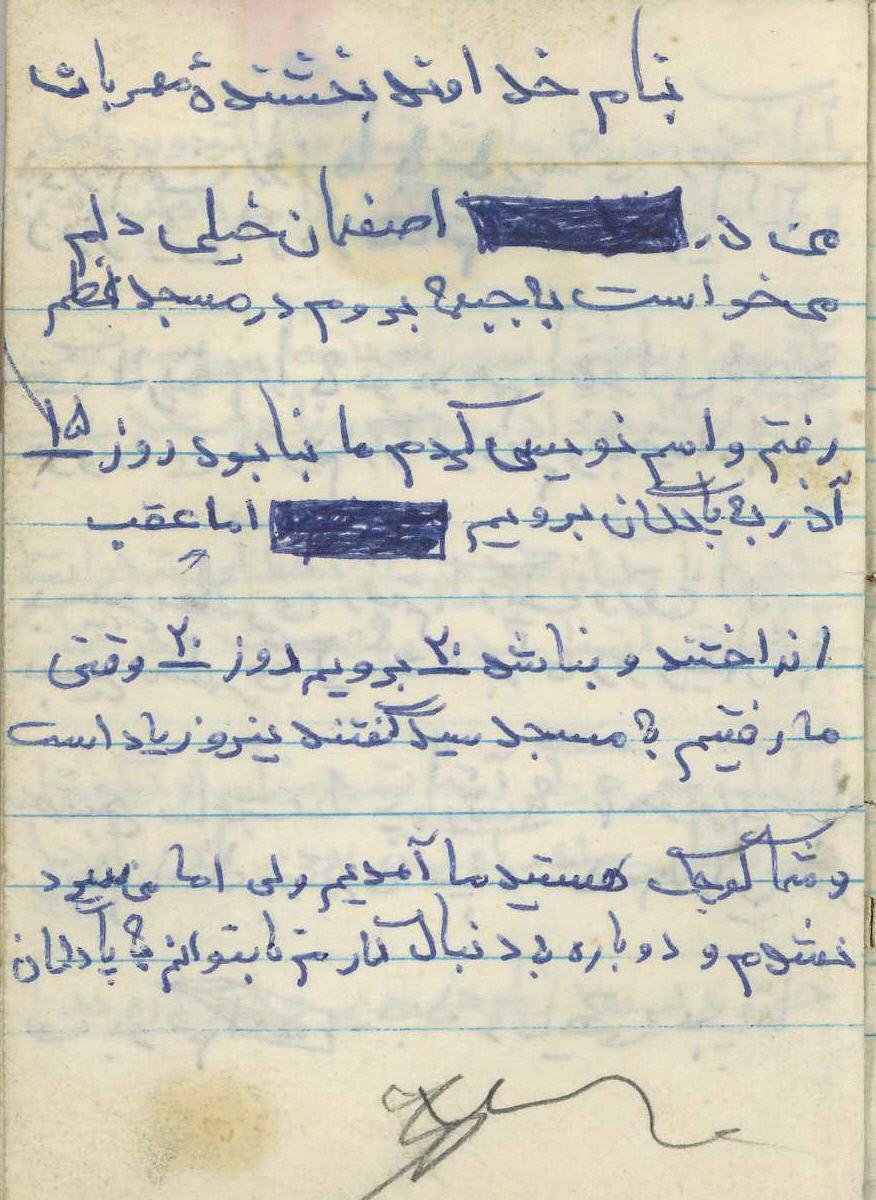 بنام خداوند بخشندۀ مهربان
من در اصفهان خیلی دلم
می خواست به جبهه بروم در مسجد اعظم
رفتم و اسم نویسی کردم ما بنا بود روز ۱۵
آذر به پادگان برویم اما عقب
انداختند و بنا شد ۲۰ برویم روز ۲۰ وقتی
ما رفتیم به مسجد سید گفتند نیرو زیاد است
و شما کوچک هستید ما آمدیم ولی اما من
نشدم و دوباره به دنبال کار تا بتوانم به پادگان